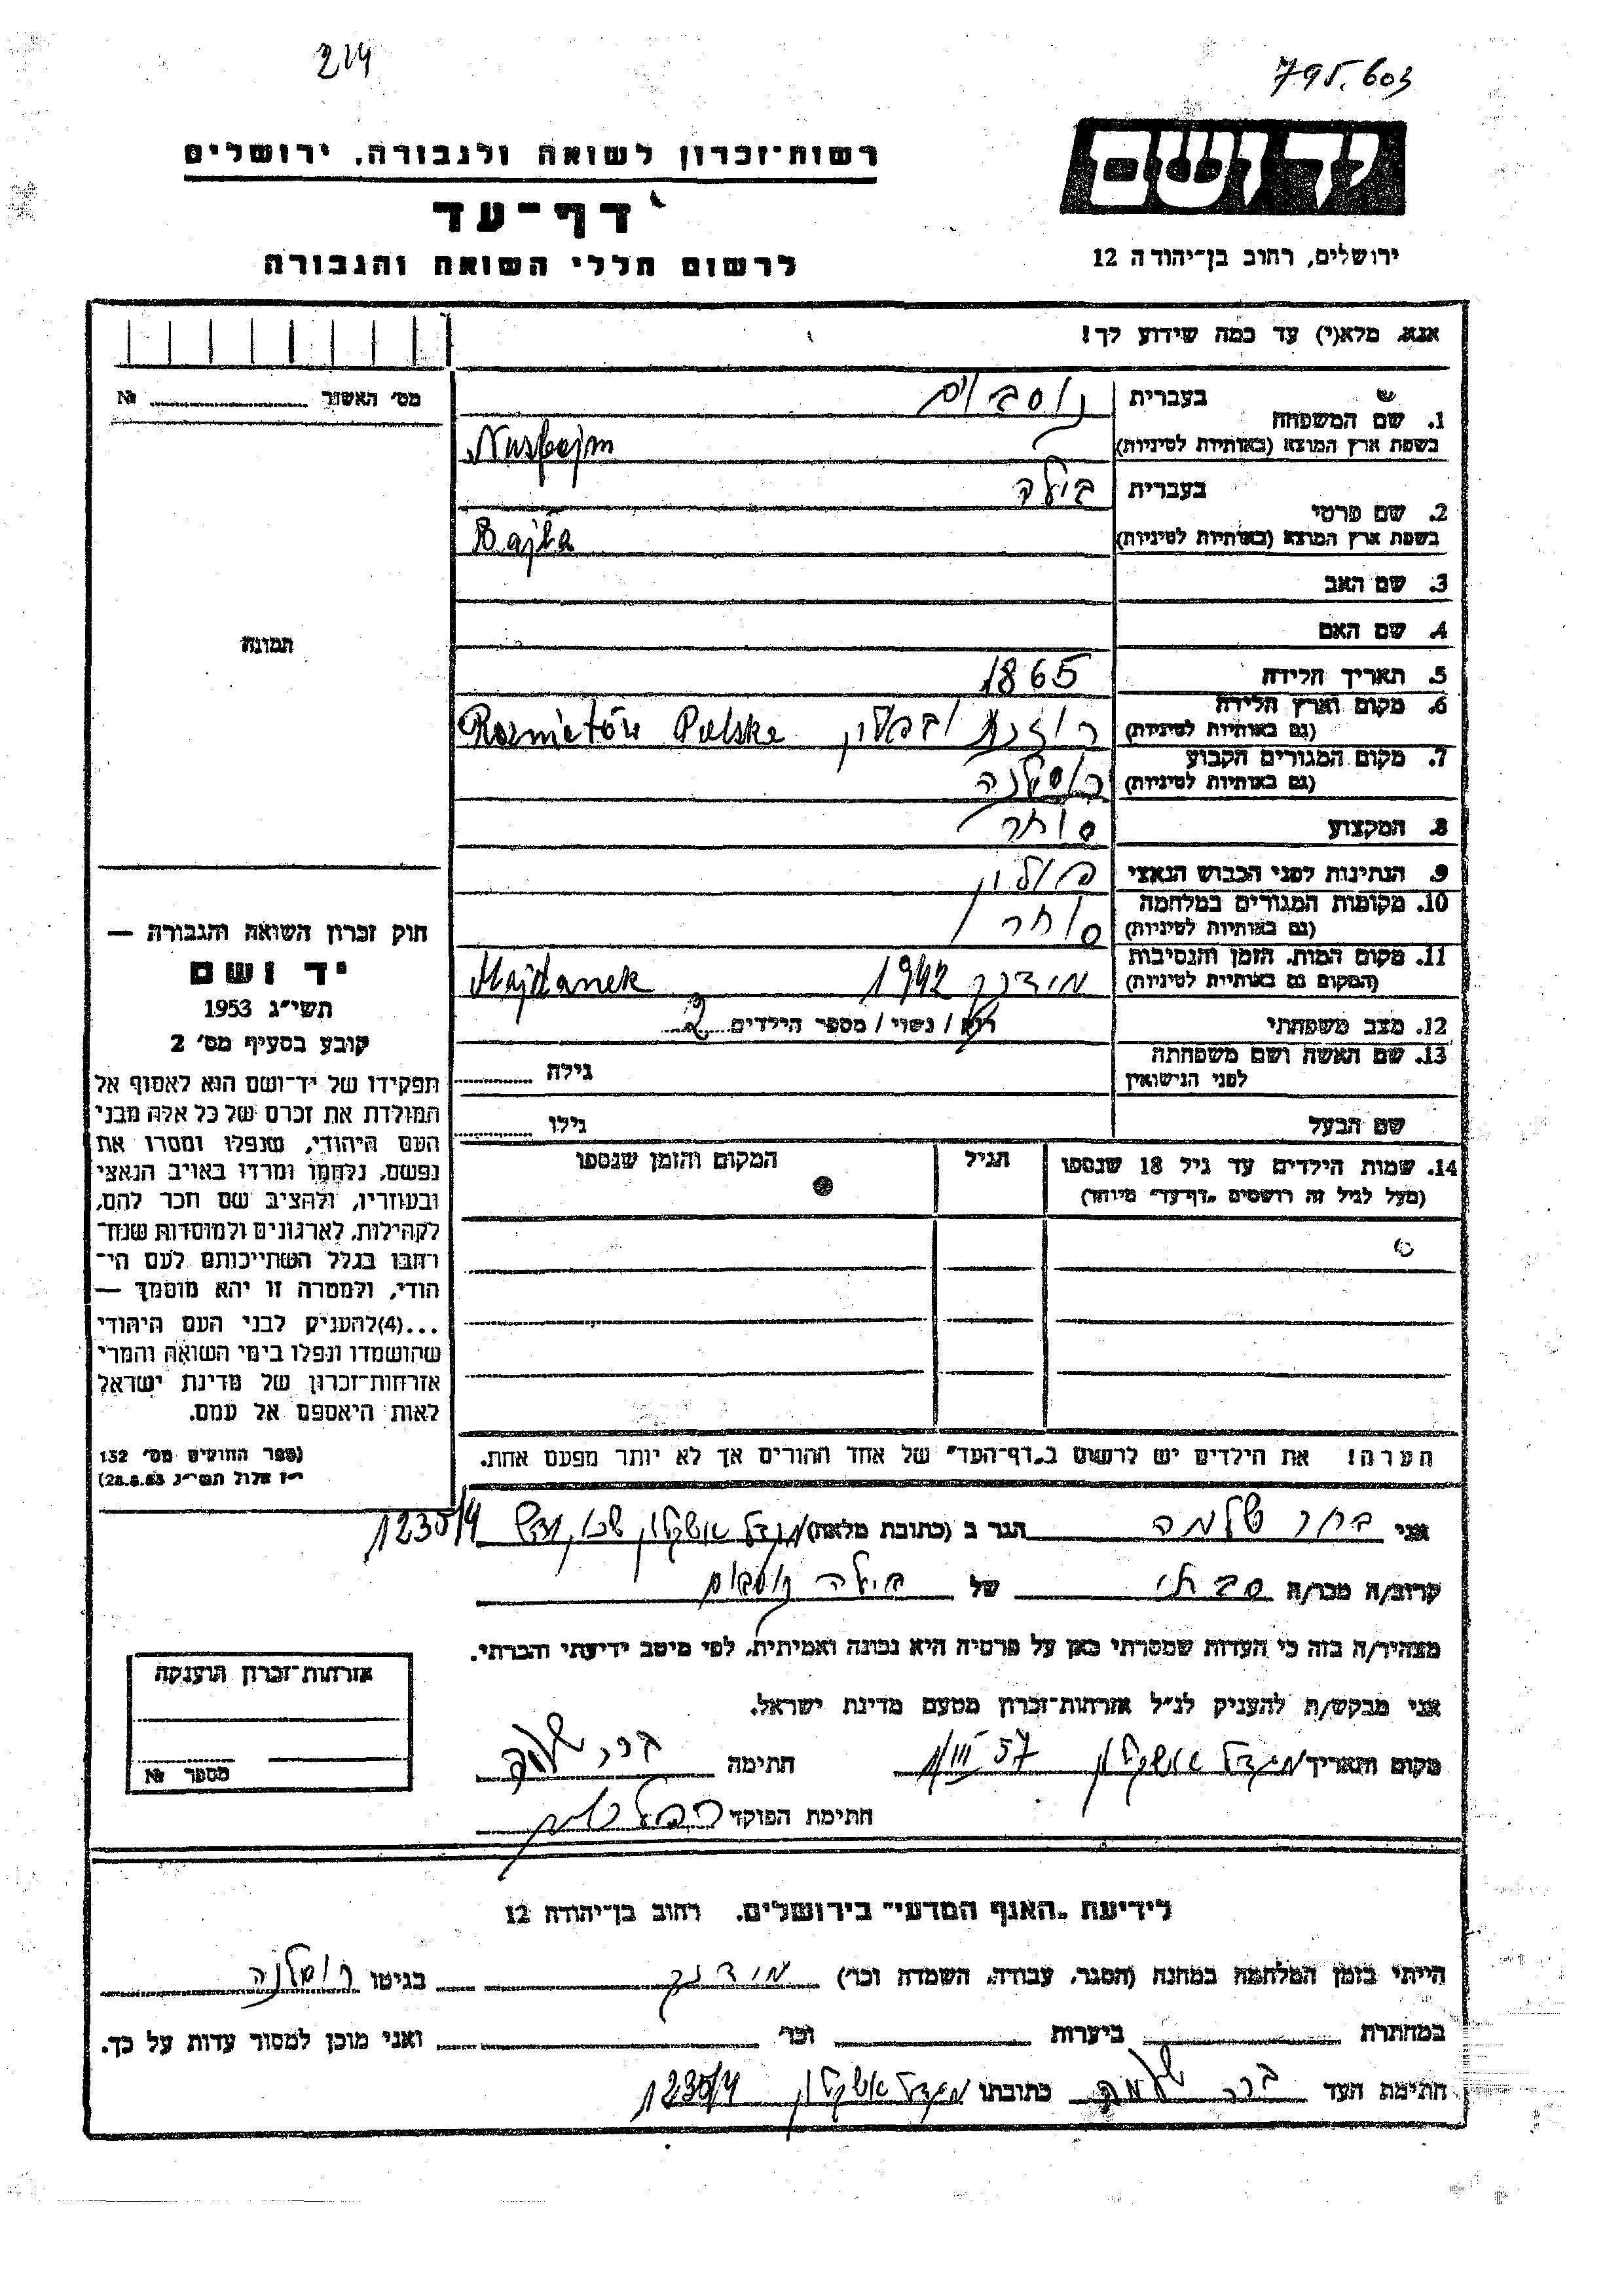 214
795.603
רשות־זכרון לשואה ולגבורה, ירושלים
יד ושם
דף־עד
ירושלים, רחוב בן־יהודה 12
לרשום חללי השואה והגבורה
אנא, מלא(י) עד כמה שידוע לך!
מס׳ האשור № 
1. שם המשפחה בעברית נוסבוים
בשפת ארץ המוצא (באותיות לטיניות) Nusbajm
2. שם פרטי בעברית ביילה
בשפת ארץ המוצא (באותיות לטיניות) Bajła
3. שם האב
4. שם האם
תמונה
5. תאריך הלידה 1865
6. מקום וארץ הלידה
(גם באותיות לטיניות) Polska
7. מקום המגורים הקבוע
(גם באותיות לטיניות)
8. המקצוע סוחר
9. הנתינות לפני הכבוש הנאצי פולין
10. מקומות המגורים במלחמה
(גם באותיות לטיניות) סוחר
11. מקום המות, הזמן והנסיבות
(המקום גם באותיות לטיניות) מידנק 1942 Majdanek
12. מצב משפחתי רווק / נשוי / מספר הילדים 2
13. שם האשה ושם משפחתה גילה
לפני הנישואין
שם הבעל גילו
14. שמות הילדים עד גיל 18 שנספו הגיל המקום והזמן שנספו
(מעל לגיל זה רושמים „דף־עד״ מיוחד)
הערה! את הילדים יש לרשום ב„דף־העד״ של אחד ההורים אך לא יותר מפעם אחת.
חוק זכרון השואה והגבורה —
יד ושם
תשי״ג 1953
קובע בסעיף מס׳ 2
תפקידו של יד־ושם הוא לאסוף אל
המולדת את זכרם של כל אלה מבני
העם היהודי, שנפלו ומסרו את
נפשם, נלחמו ומרדו באויב הנאצי
ובעוזריו, ולהציב שם וזכר להם,
לקהילות, לארגונים ולמוסדות שנח־
רבו בגלל השתייכותם לעם הי־
הודי, ולמטרה זו יהא מוסמך —
...(4)להעניק לבני העם היהודי
שהושמדו ונפלו בימי השואה והמרי
אזרחות־זכרון של מדינת ישראל
לאות היאספם אל עמם.
(ספר החוקים מס׳ 132
י״ז אלול תשי״ג 28.8.53)
אני שלמה הגר ב (כתובת מלאה) מגדל אשקלון 1235/4
קרוב/ה מכר/ה סבתי של ביילה נוסבוים
מצהיר/ה בזה כי העדות שמסרתי כאן על פרטיה היא נכונה ואמיתית, לפי מיטב ידיעתי והכרתי.
אני מבקש/ת להעניק לנ״ל אזרחות־זכרון מטעם מדינת ישראל.
מקום ותאריך מגדל אשקלון 1/III 57 חתימה
חתימת הפוקד
אזרחות־זכרון הוענקה
מספר №
לידיעת „האגף המדעי״ בירושלים, רחוב בן־יהודה 12
הייתי בזמן המלחמה במחנה (הסגר, עבודה, השמדה וכו׳) מידנק בגיטו
במחתרת ביערות וכו׳ ואני מוכן למסור עדות על כך.
חתימת העד שלמה כתובתו מגדל אשקלון 1235/4